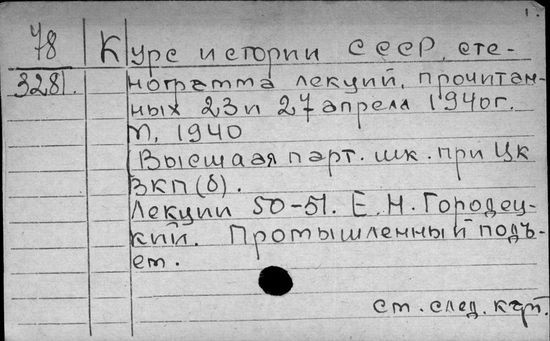 1.
78
3281.
Курс истории СССР, сте-
нограмма лекций, прочитан-
ных 23 и 27 апреля 1940г.
М, 1940
Высшая парт. шк. при ЦК
ВКП(б).
Лекции 50-51. Е.Н. Городец-
кий. Промышленный подъ-
ем.
ст. след. карт.